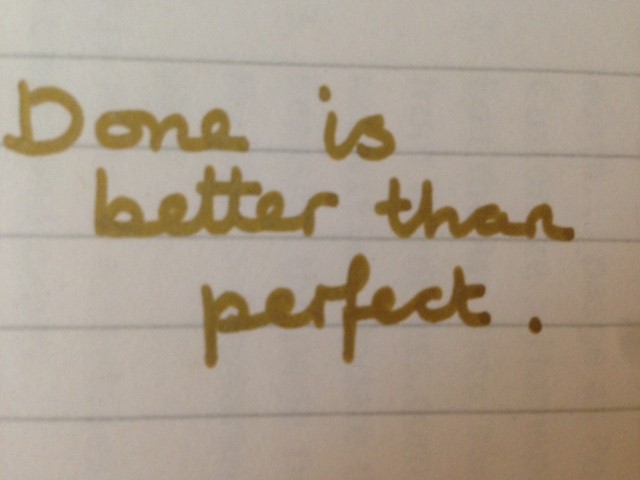 Done is
better than
perfect.